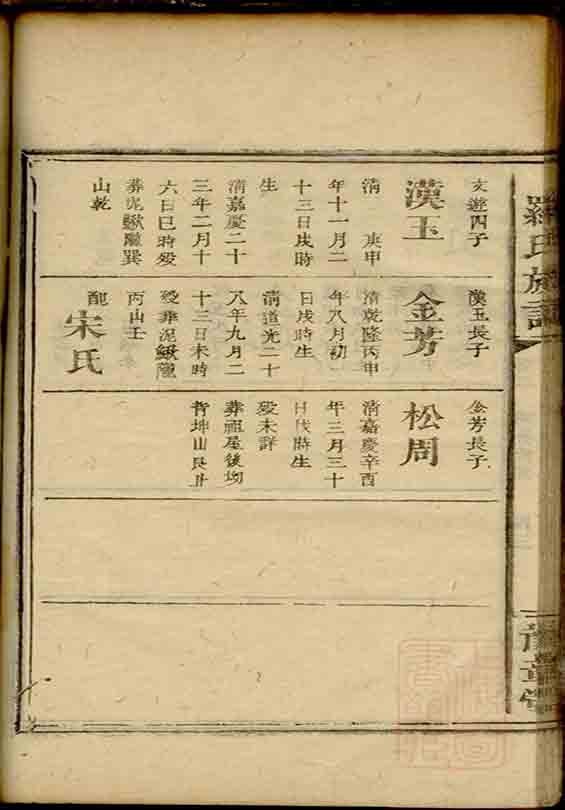 羅氏族譜
文遊四子
漢玉
清 庚申
年十一月二
十三日戌時
生
清嘉慶二十
三年二月十
六日巳時歿
葬泥鰍壟巽
山乾
漢玉長子
金芳
清乾隆丙申
年八月初
日戌時生
清道光二十
八年九月二
十三日未時
歿葬泥鰍隴
丙山壬
配
宋氏
金芳長子
松周
清嘉慶辛酉
年三月三十
日戌時生
歿未詳
葬祖屋後坳
背坤山艮